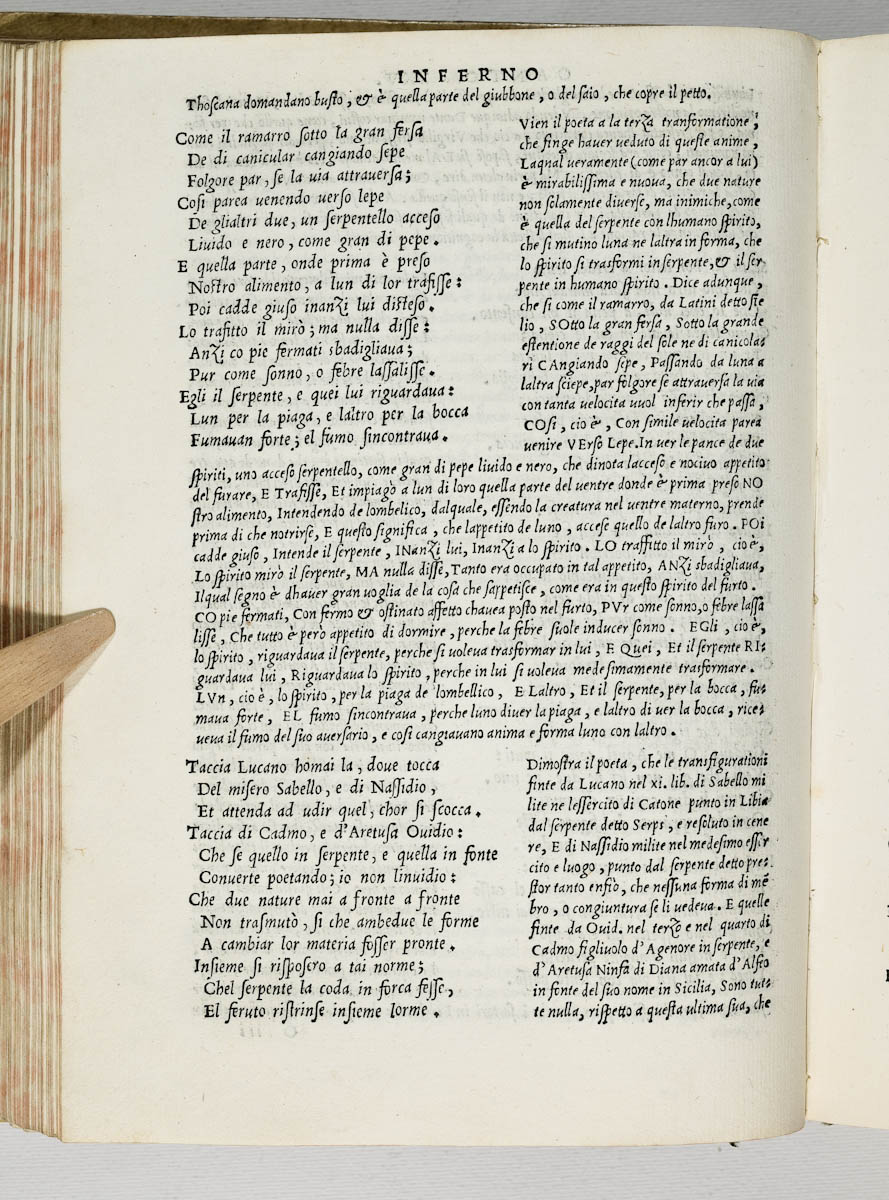 INFERNO
Thoscana domandano busto, & è quella parte del giubbone, o del saio, che copre il petto.
Come il ramarro sotto la gran fersa
De di canicular cangiando sepe
Folgore par, se la uia attrauersa;
Cosi parea uenendo uerso lepe
De glialtri due, un serpentello acceso
Liuido e nero, come gran di pepe.
E quella parte, onde prima è preso
Nostro alimento, a lun di lor trafisse:
Poi cadde giuso inanzi lui disteso.
Lo trafitto il mirò; ma nulla disse:
Anzi co pie fermati sbadigliaua;
Pur come sonno, o febre lassalisse.
Egli il serpente, e quei lui riguardaua:
Lun per la piaga, e laltro per la bocca
Fumauan forte; el fumo sincontraua.
Vien il poeta a la terza tranformatione,
che finge hauer ueduto di queste anime,
Laqual ueramente (come par ancor a lui)
è mirabilissima e nuoua, che due nature
non solamente diuerse, ma inimiche, come
è quella del serpente con lhumano spirito,
che si mutino luna ne laltra in forma, che
lo spirito si trasformi in serpente, & il ser
pente in humano spirito. Dice adunque,
che si come il ramarro, da Latini detto ste
lio, SOtto la gran fersa, Sotto la grande
estentione de raggi del sole ne di canicola:
ri CAngiando sepe, Passando da luna a
laltra sciepe, par folgore se attrauersa la uia
con tanta uelocita uuol inferir che passa,
COsi, cio è, Con simile uelocita parea
uenire VErso Lepe. In uer le pance de due
spiriti, uno acceso serpentello, come gran di pepe liuido e nero, che dinota lacceso e nociuo appetito
del furare, E Trafisse, Et impiagò a lun di loro quella parte del uentre donde è prima preso NO
stro alimento, Intendendo de lombelico, dalquale, essendo la creatura nel uentre materno, prende
prima di che notrirse, E questo significa, che lappetito de luno, accese quello de laltro furo. POi
cadde giuso, Intende il serpente, INanzi lui, Inanzi a lo spirito. LO traffitto il mirò, cio è,
Lo spirito mirò il serpente, MA nulla disse, Tanto era occupato in tal appetito, ANzi sbadigliaua,
Ilqual segno è dhauer gran uoglia de la cosa che sappetisce, come era in questo spirito del furto.
CO pie fermati, Con fermo & ostinato affetto chauea posto nel furto, PVr come sonno, o febre lassa
lisse, Che tutto è però appetito di dormire, perche la febre suole inducer sonno. EGli, cio è,
lo spirito, riguardaua il serpente, perche si uoleua trasformar in lui, E QUei, Et il serpente RI:
guardaua lui, Riguardaua lo spirito, perche in lui si uoleua medesimamente trasformare.
LVn, cio è, lo spirito, per la piaga de lombellico, E Laltro, Et il serpente, per la bocca, fu:
maua forte, EL fumo sincontraua, perche luno diuer la piaga, e laltro di uer la bocca, rice:
ueua il fumo del suo auersario, e cosi cangiauano anima e forma luno con laltro.
Taccia Lucano homai la, doue tocca
Del misero Sabello, e di Nassidio,
Et attenda ad udir quel, chor si scocca.
Taccia di Cadmo, e d'Aretusa Ouidio:
Che se quello in serpente, e quella in fonte
Conuerte poetando; io non linuidio:
Che due nature mai a fronte a fronte
Non trasmutò, si che ambedue le forme
A cambiar lor materia fosser pronte.
Insieme si risposero a tai norme;
Chel serpente la coda in forca fesse,
El feruto ristrinse insieme lorme.
Dimostra il poeta, che le transfigurationi
finte da Lucano nel xi. lib. di Sabello mi
lite ne lessercito di Catone punto in Libia
dal serpente detto Serps, e resoluto in cene
re, E di Nassidio milite nel medesimo esser
cito e luogo, punto dal serpente detto pre:
stor tanto enfiò, che nessuna forma di mē
bro, o congiuntura se li uedeua. E quelle
finte da Ouid. nel terzo e nel quarto di
Cadmo figliuolo d'Agenore in serpente, e
d'Aretusa Ninfa di Diana amata d'Alfeo
in fonte del suo nome in Sicilia, Sono tut:
te nulla, rispetto a questa ultima sua, che